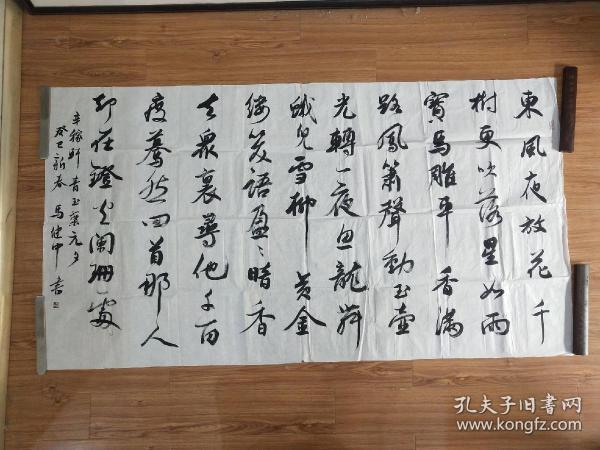 東風夜放花千
樹更吹落星如雨
寶馬雕車香滿
路鳳簫聲動玉壺
光轉一夜魚龍舞
蛾兒雪柳黃金
縷笑語盈盈暗香
去眾裏尋他千百
度驀然回首那人
却在燈火闌珊處
辛稼軒青玉案元夕
癸巳新春馬健中書
孔夫子旧书网
www.kongfz.com